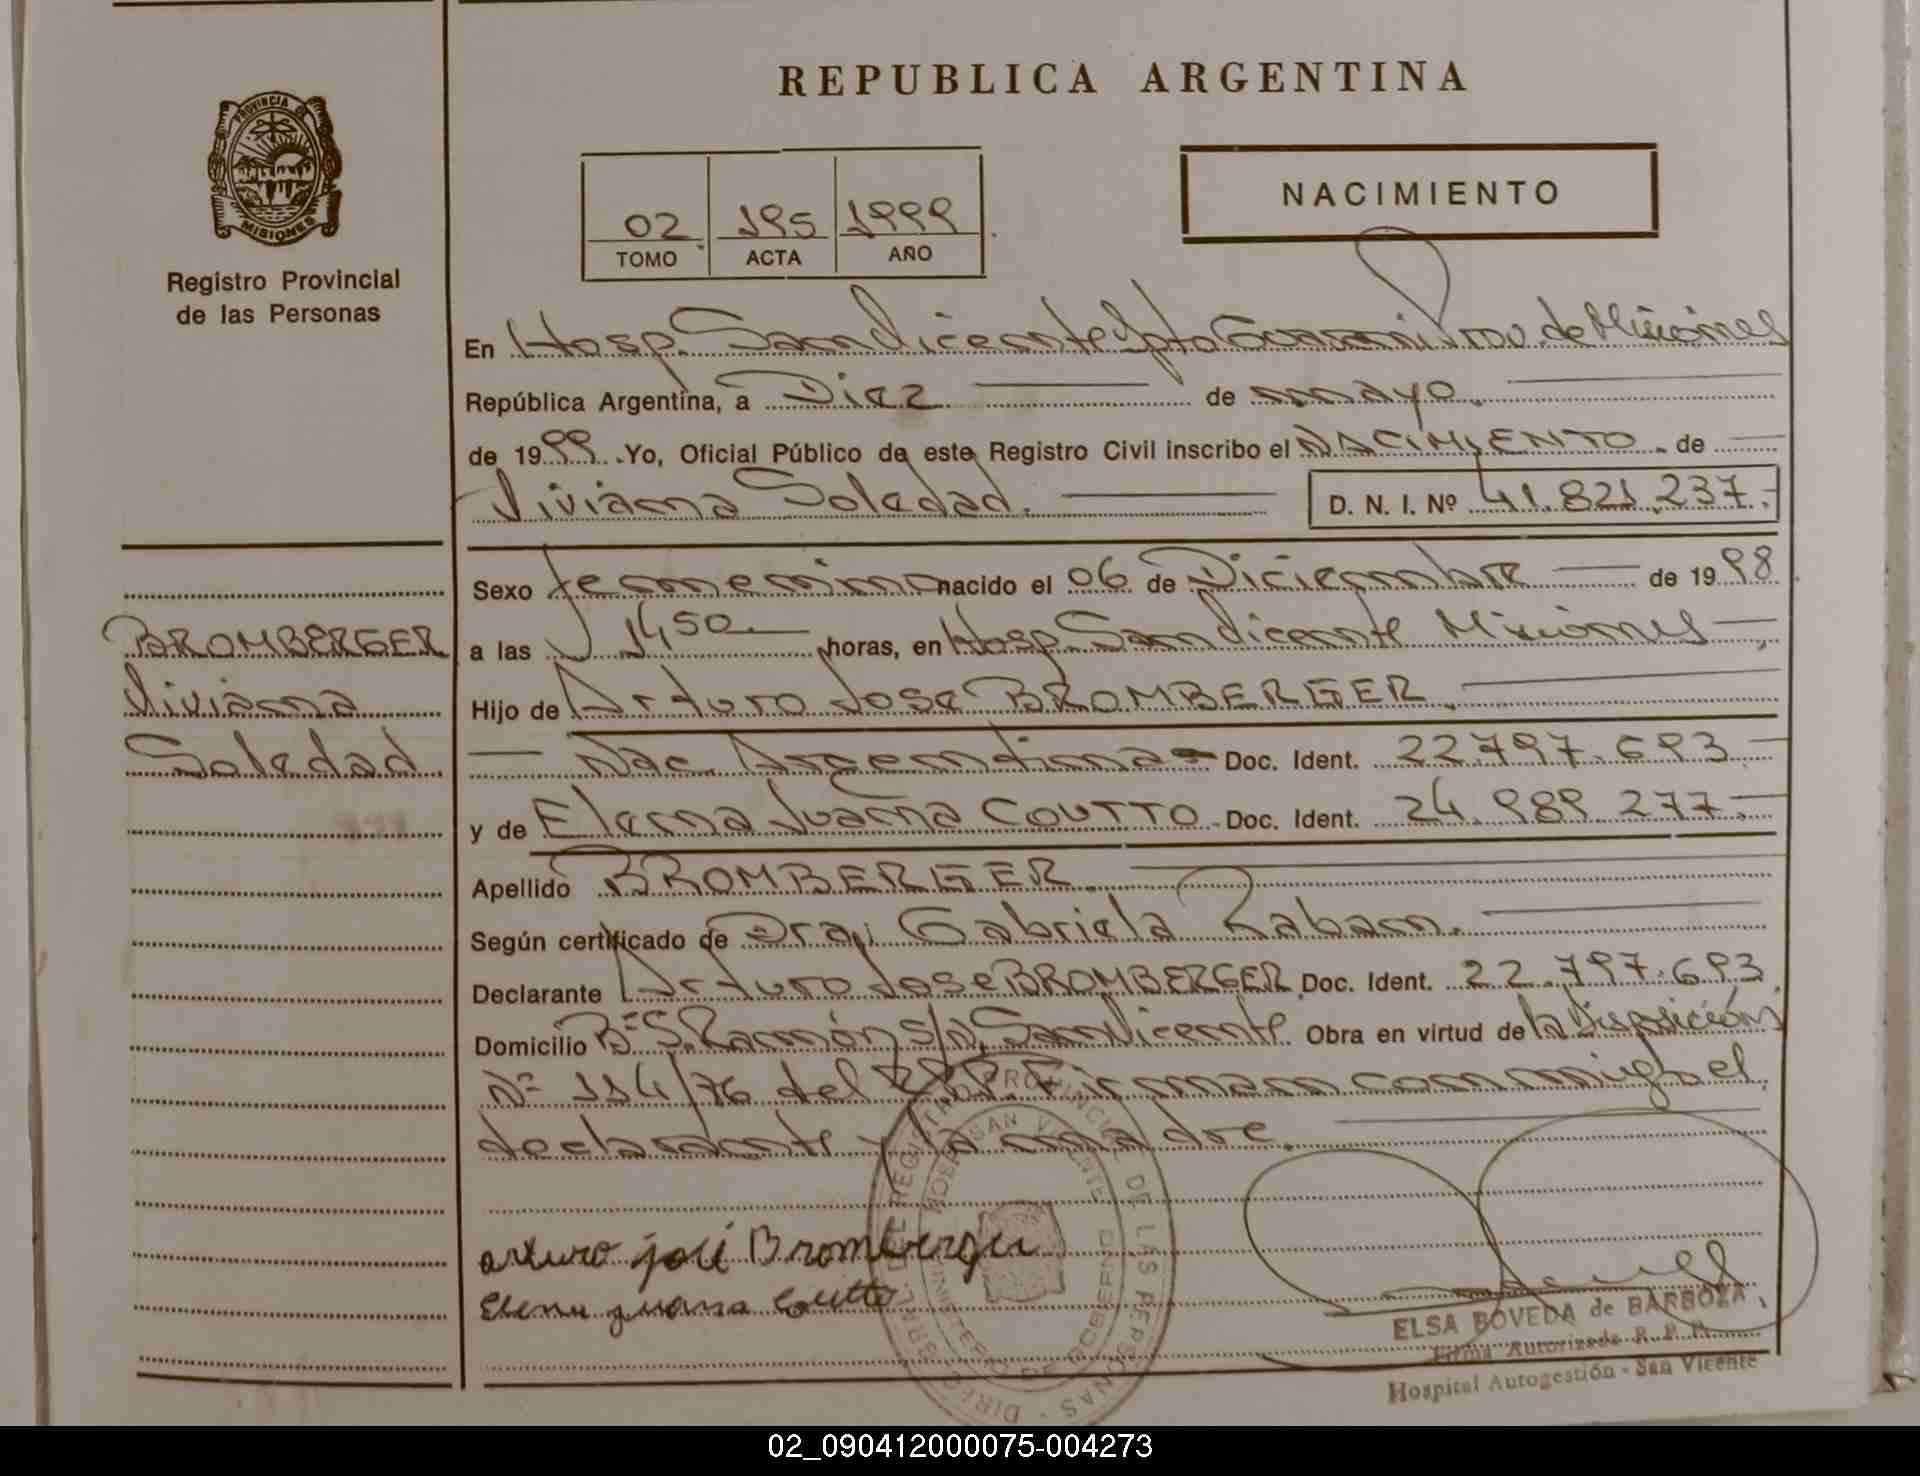 REPUBLICA ARGENTINA
PROVINCIA DE
MISIONES
Registro Provincial
de las Personas
02 195 1999
TOMO ACTA AÑO
NACIMIENTO
En Hosp. San Vicente Dpto Guarani Prov. de Misiones
República Argentina, a Diez de mayo.
de 1999. Yo, Oficial Público de este Registro Civil inscribo el NACIMIENTO. de
Viviana Soledad. D. N. I. Nº 41.821.237.-
Sexo femenino nacido el 06 de Diciembre de 1998
a las 14 50 horas, en Hosp. San Vicente Misiones
Hijo de Arturo Jose BROMBERGER.
Nac. Argentina Doc. Ident. 22.797.693
y de Elena Juana COUTTO Doc. Ident. 24.989.277.
Apellido BROMBERGER.
Según certificado de Dra. Gabriela Rabam.
Declarante Arturo Jose BROMBERGER. Doc. Ident. 22.797.693
Domicilio Bº S. Ramón s/n, San Vicente. Obra en virtud de la Disposición
Nº 114/76 del R.P.P. Firman conmigo el
declarante y la madre.
BROMBERGER
Viviana
Soledad
arturo josé Bromberger
Elena juana Coutto
DIREC. GRAL. DE REGISTRO PROVINCIAL DE LAS PERSONAS
HOSP. SAN VICENTE
MINISTERIO DE GOBIERNO
ELSA BOVEDA de BARBOZA
Firma Autorizada R. P. P.
Hospital Autogestión - San Vicente
02_090412000075-004273